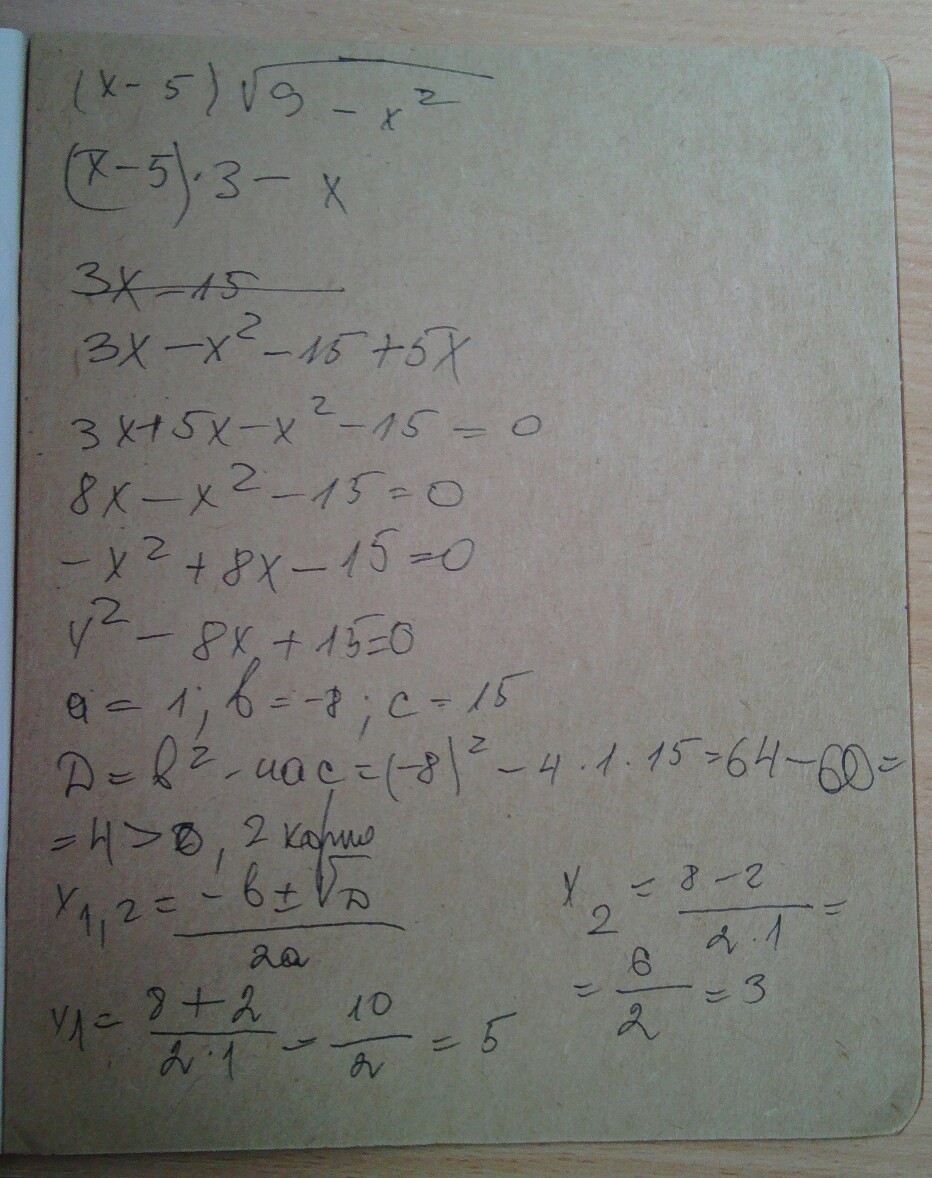 (x - 5) √9 - x²
(x - 5) · 3 - x
3x - 15
3x - x² - 15 + 5x
3x + 5x - x² - 15 = 0
8x - x² - 15 = 0
- x² + 8x - 15 = 0
x² - 8x + 15 = 0
a = 1; b = -8; c = 15
D = b² - 4ac = (-8)² - 4 · 1 · 15 = 64 - 60 =
= 4 > 0, 2 корня
x₁,₂ = (-b ± √D) / 2a
x₁ = (8 + 2) / (2 · 1) = 10 / 2 = 5
x₂ = (8 - 2) / (2 · 1) =
= 6 / 2 = 3